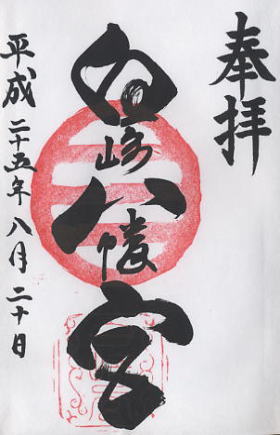 奉拝
白崎八幡宮
平成二十五年八月二十日